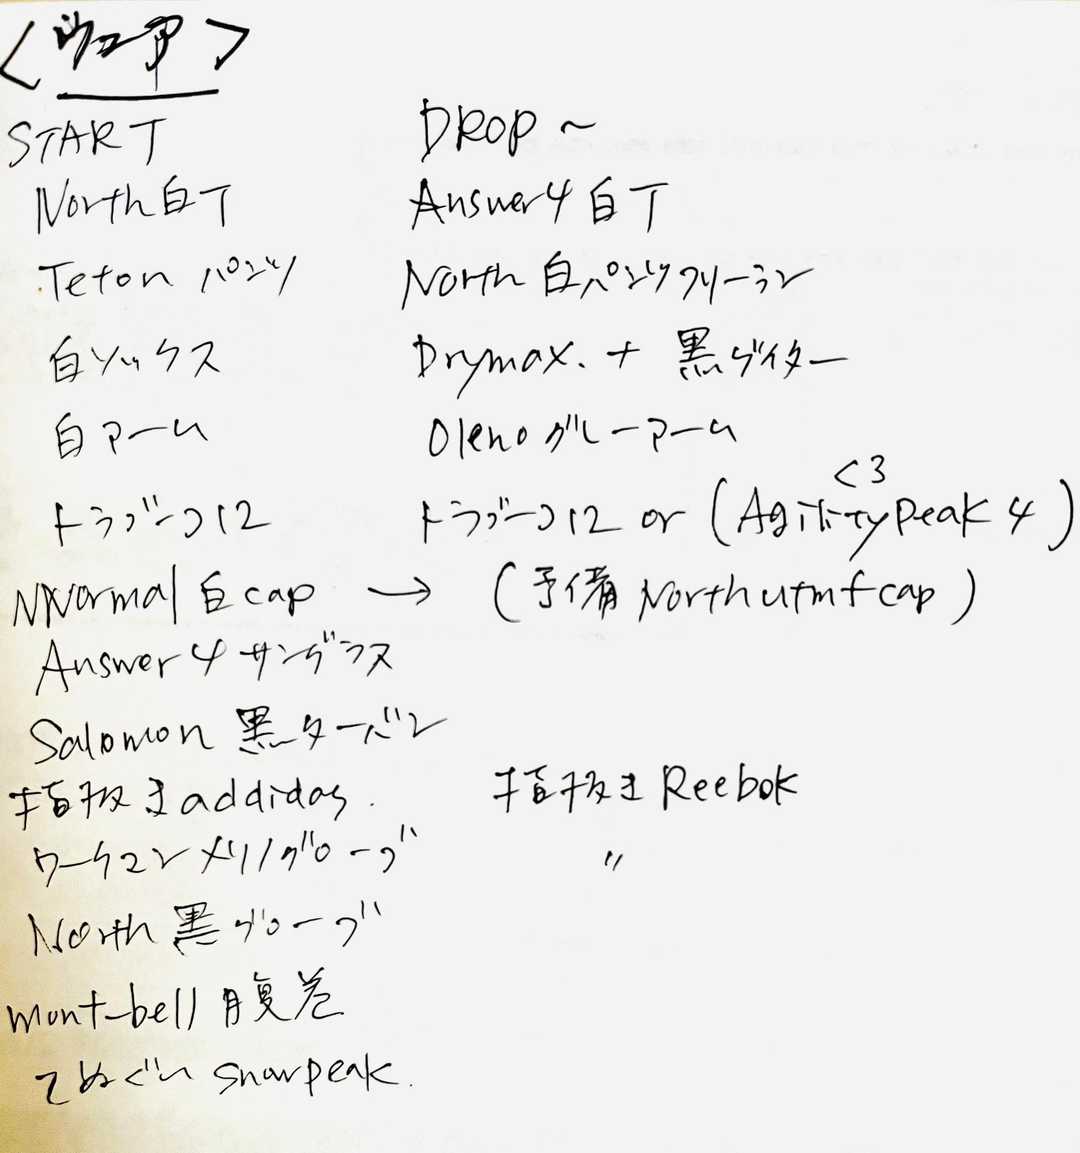 <ウェア>
START DROP~
North白T Answer4白T
Teton パンツ North 白パンツクリーラン
白ソックス Drymax. + 黒ゲイター
白アーム Olenoグレーアーム
<3
トラブーコ12 トラブーコ12 or (AgilityPeak 4)
NNormal白cap → (予備 North utmf cap)
Answer4サングラス
Salomon 黒ターバン
指抜きaddidas. 指抜きReebok
ワークマンメリノグローブ 〃
North 黒グローブ
mont-bell腹巻
てぬぐい snowpeak.